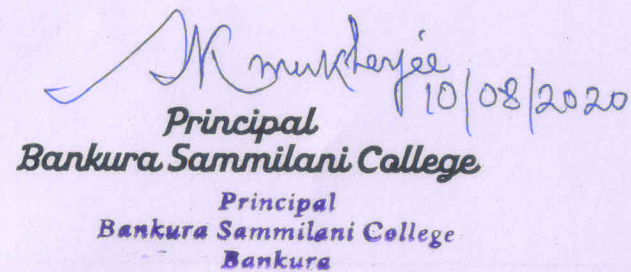 SK Mukherjee
10/08/2020
Principal
Bankura Sammilani College
Principal
Bankura Sammilani College
Bankura